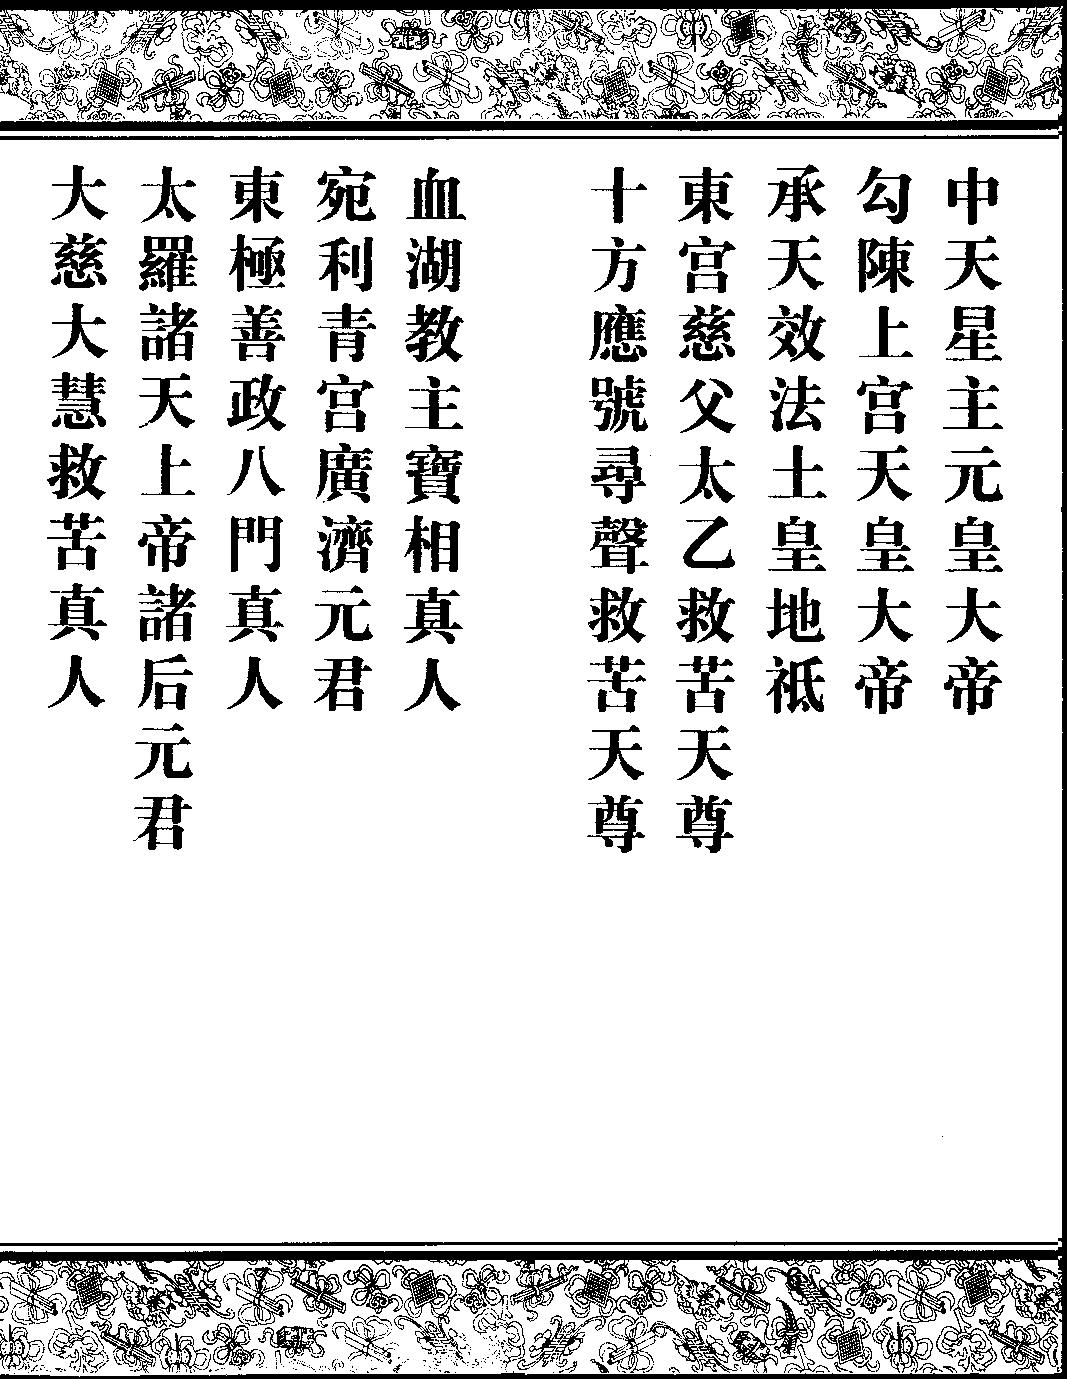 中天星主元皇大帝
勾陳上宮天皇大帝
承天效法土皇地祇
東宮慈父太乙救苦天尊
十方應號尋聲救苦天尊
血湖教主寶相真人
宛利青宮廣濟元君
東極善政八門真人
太羅諸天上帝諸后元君
大慈大慧救苦真人